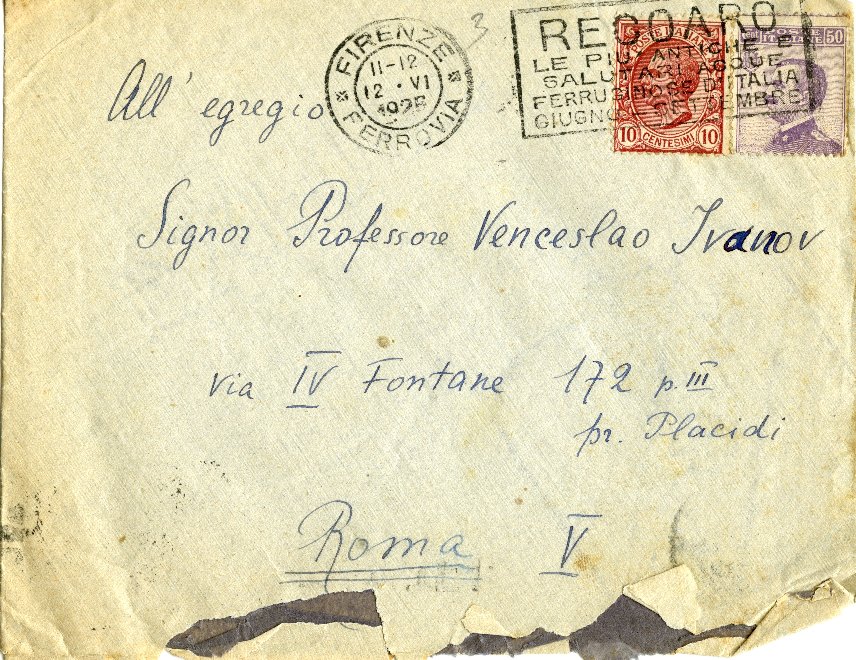 3
FIRENZE
11-12
12 · VI
FERROVIA
RECOARO
LE PIÙ ANTICHE E
SALUTARI ACQUE
FERRUGINOSE D'ITALIA
GIUGNO SETTEMBRE
POSTE ITALIANE
10 10
CENTESIMI
POSTE
50
All' egregio
Signor Professore Venceslao Ivanov
via IV Fontane 172 p. III
pr. Placidi
Roma V